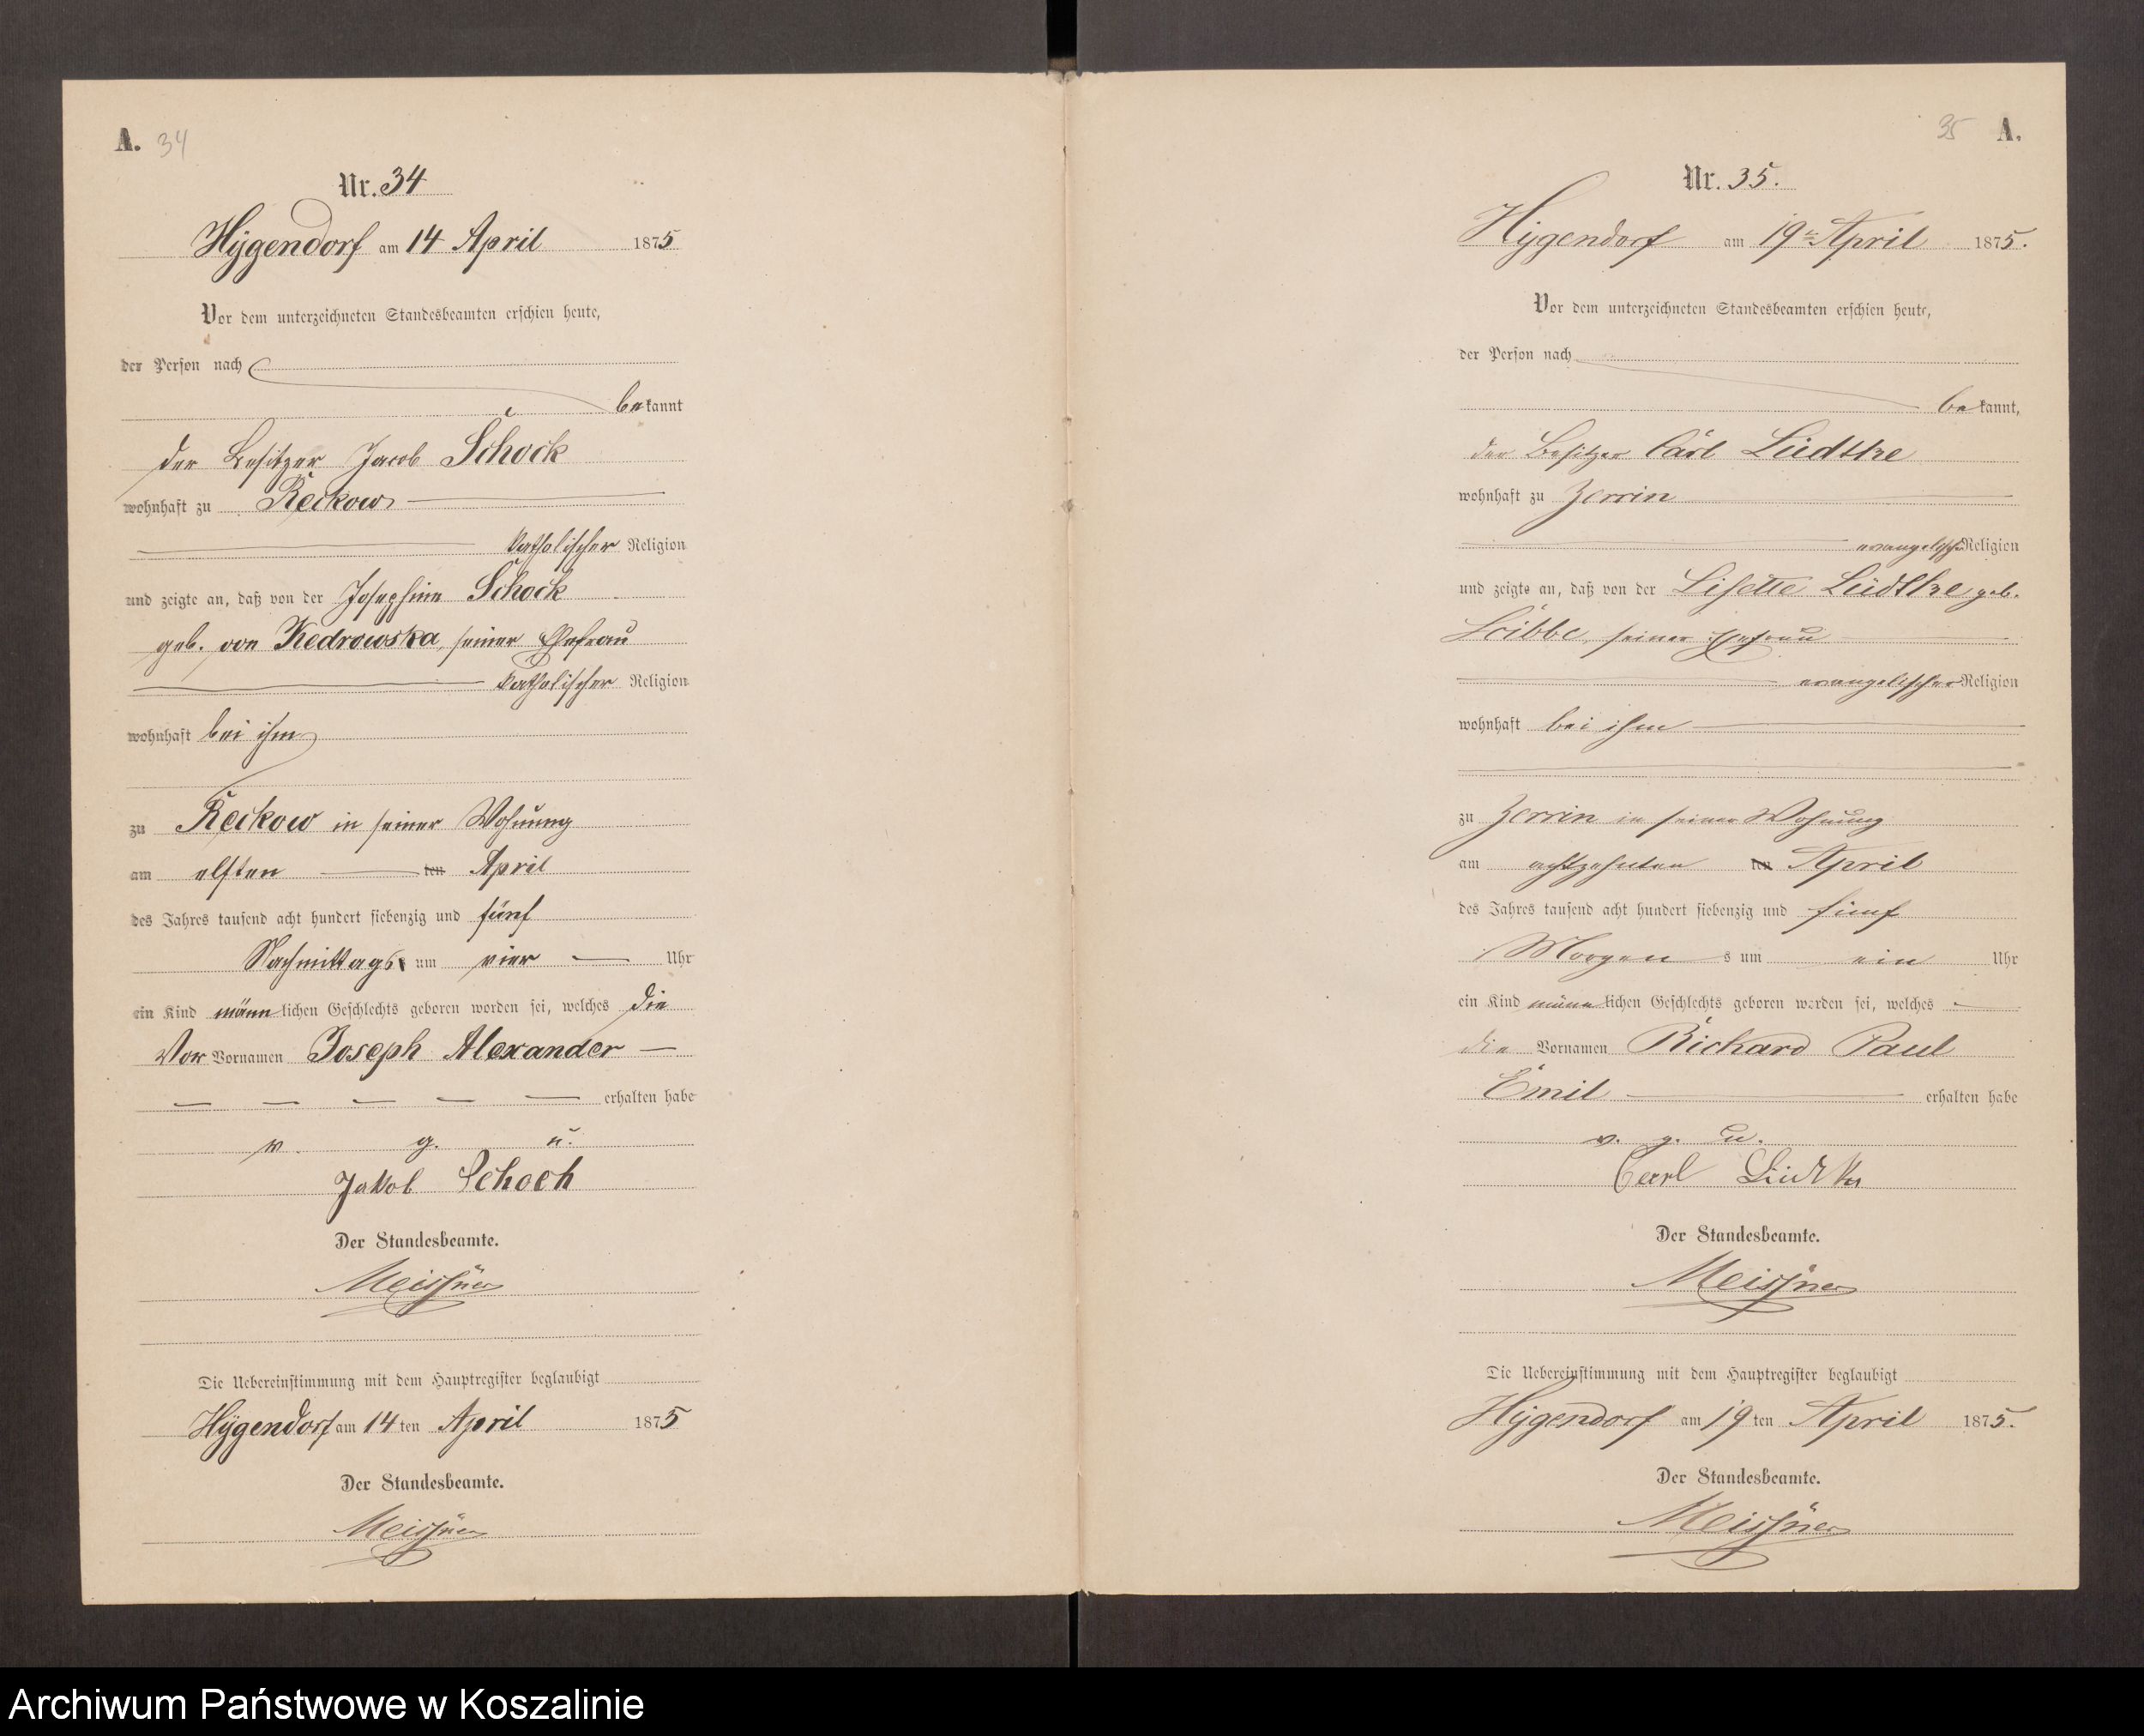 A. 34
Nr. 34
Hygendorf am 14 April 1875
Vor dem unterzeichneten Standesbeamten erschien heute,
der Person nach
bekannt
der Besitzer Jacob Schock
wohnhaft zu Reckow
katholischer Religion
und zeigte an, daß von der Josephine Schock
geb. von Kedrowska, seiner Ehefrau
katholischer Religion
wohnhaft bei ihm
zu Reckow in seiner Wohnung
am elften ten April
des Jahres tausend acht hundert siebenzig und fünf
Nachmittags um vier Uhr
ein Kind männlichen Geschlechts geboren worden sei, welches die
Vor Vornamen Joseph Alexander
erhalten habe
v. g. u.
Jakob Schock
Der Standesbeamte.
Meissner
Die Uebereinstimmung mit dem Hauptregister beglaubigt
Hygendorf am 14 ten April 1875
Der Standesbeamte.
Meissner
35 A.
Nr. 35.
Hygendorf am 19 April 1875.
Vor dem unterzeichneten Standesbeamten erschien heute,
der Person nach
bekannt,
der Besitzer Carl Lüdtke
wohnhaft zu Zerrin
evangelischer Religion
und zeigte an, daß von der Lisette Lüdtke geb.
Löbbe, seiner Ehefrau
evangelischer Religion
wohnhaft bei ihm
zu Zerrin in seiner Wohnung
am achtzehnten ten April
des Jahres tausend acht hundert siebenzig und fünf
Morgens um ein Uhr
ein Kind männlichen Geschlechts geboren worden sei, welches
die Vornamen Richard Paul
Emil erhalten habe
v. g. u.
Carl Lüdtke
Der Standesbeamte.
Meissner
Die Uebereinstimmung mit dem Hauptregister beglaubigt
Hygendorf am 19 ten April 1875.
Der Standesbeamte.
Meissner
Archiwum Państwowe w Koszalinie